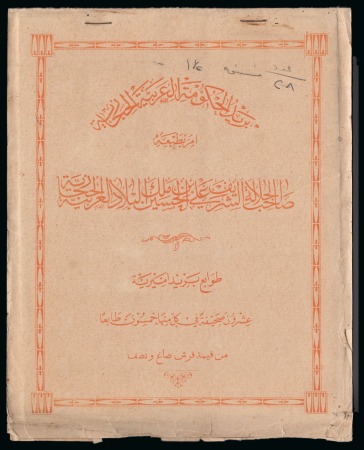 عدد ١٤ صحيفه
٢٠٨
بريد الحكومة العربية الحجازية
امر بطبعه
صاحب الجلالة الشريف علي بن الحسين ملك البلاد العربية الحجازية
طوابع بريد اميرية
عشرون صحيفة في كل منها خمسون طابعا
من قيمة قرش صاغ ونصف